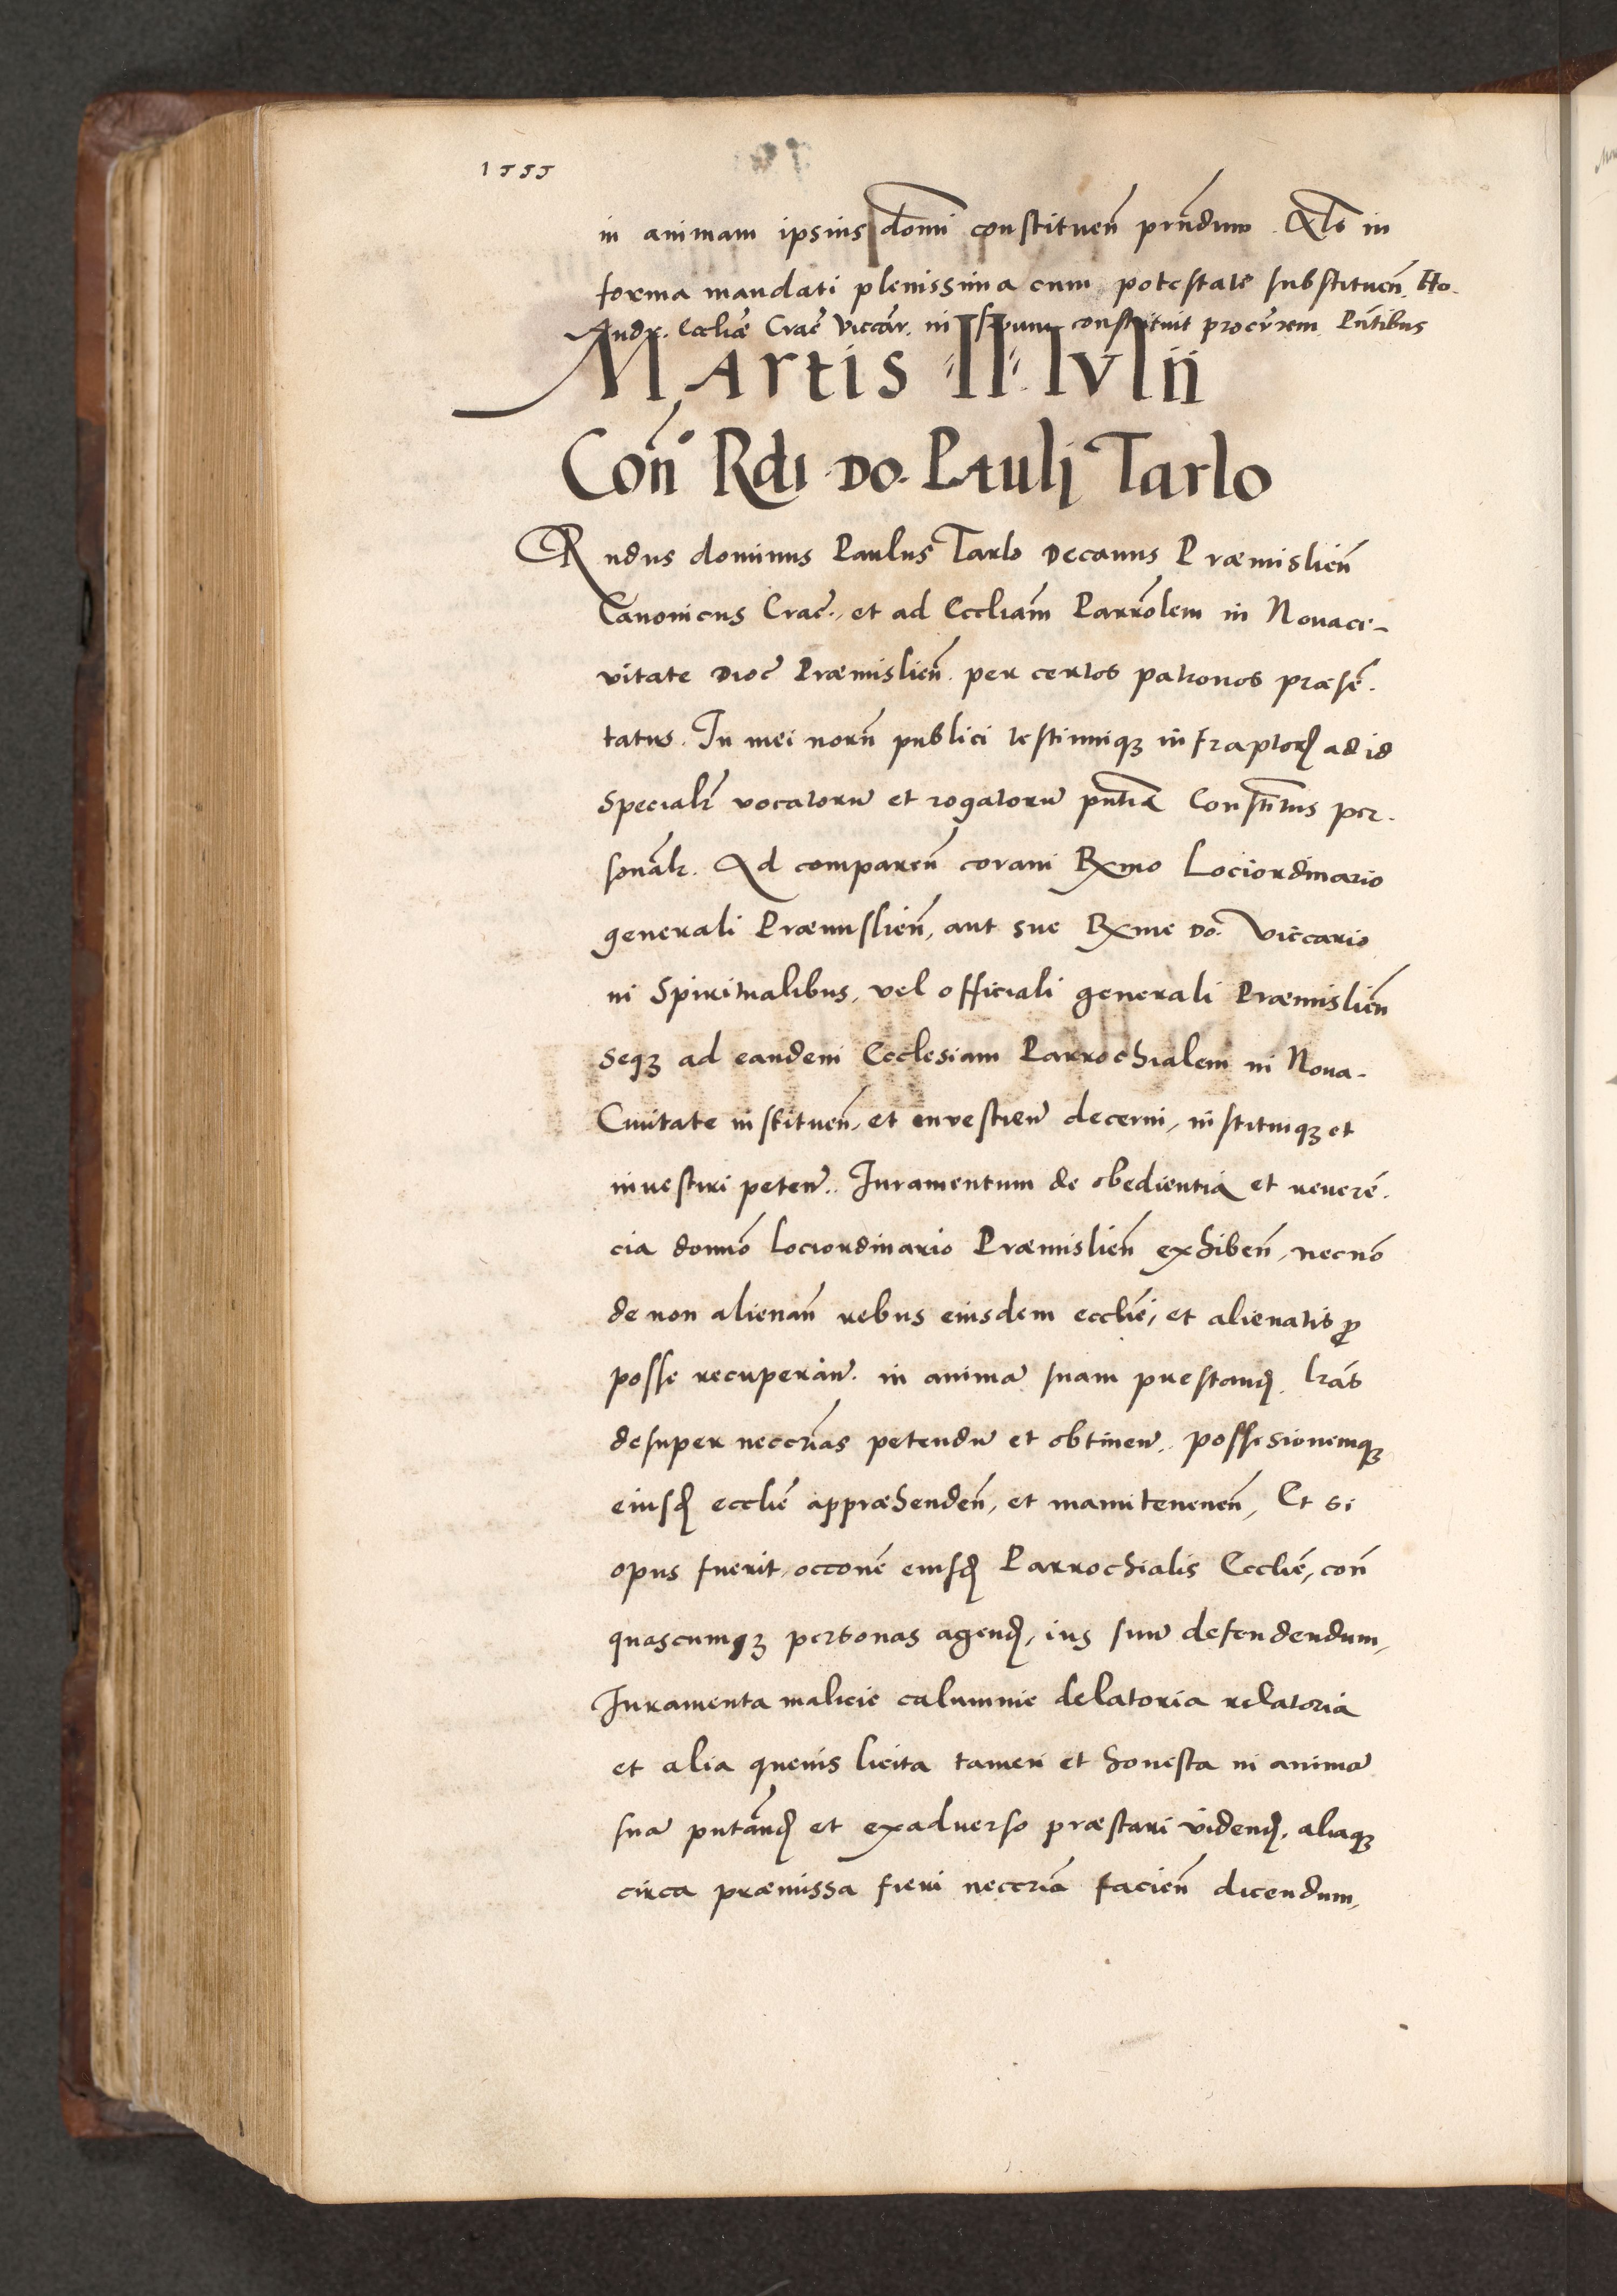 1555
in animam ipsius domi constituen̄ prn̄dum. Als in
forma mandati plenissima cum potestate substituen̄. Ho.
Andr. Eccliæ Crac̄ viccar. in suum constituit procr̄rem. Pn̄tibus
Martis II Iulii
Con̄o Rdi Do. Pauli Tarlo
Rndus dominus Paulus Tarlo Decanus Præmislien̄
Canonicus Crac̄. et ad Eccliam̄ Parrōlem in Nouaci-
vitate Dioc̄ Præmislien̄. per certos patronos præsē.
tatus. In mei norn̄ publici testiumq3 infraptorꝭ ad id
Specialr̄ vocatorū et rogatorū pn̄tia Constitus per.
sonalr̄. Ad comparen̄ coram Rxmo Lociordinario
generali Præmislien̄, aut sue Rxme Do. Viccario
in Spiritualibus, vel officiali generali Præmislien̄
seq3 ad eandem Ecclesiam Parrochialem in Noua-
Ciuitate instituen̄, et inuestien̄ decerni, instituiq3 et
inuestiri peten̄. Iuramentum de obedientia et reuerē.
cia domīo Lociordinario Præmislien̄ exhiben̄, necnō
de non alienan̄ rebus eiusdem ecclie, et alienatis ꝓ
posse recuperan̄. in animā suam prestandꝭ. Lrās
desuper neccr̄ias petendū et obtinen̄. possesionemq3
eiusdꝭ ecclie appræhenden̄, et manutenenen̄, Et si
opus fuerit, occōne eiusdꝭ Parrochialis Ecclie, con̄
quascumq3 personas agendꝭ, ius suū defendendum,
Iuramenta malicie calumnie delatoria relatoria
et alia queuis licita tamen et honesta in animā
suā pn̄tandꝭ et exaduerso præstari videndꝭ. aliaq3
circa præmissa fieri neccr̄ia facien̄ dicendum,